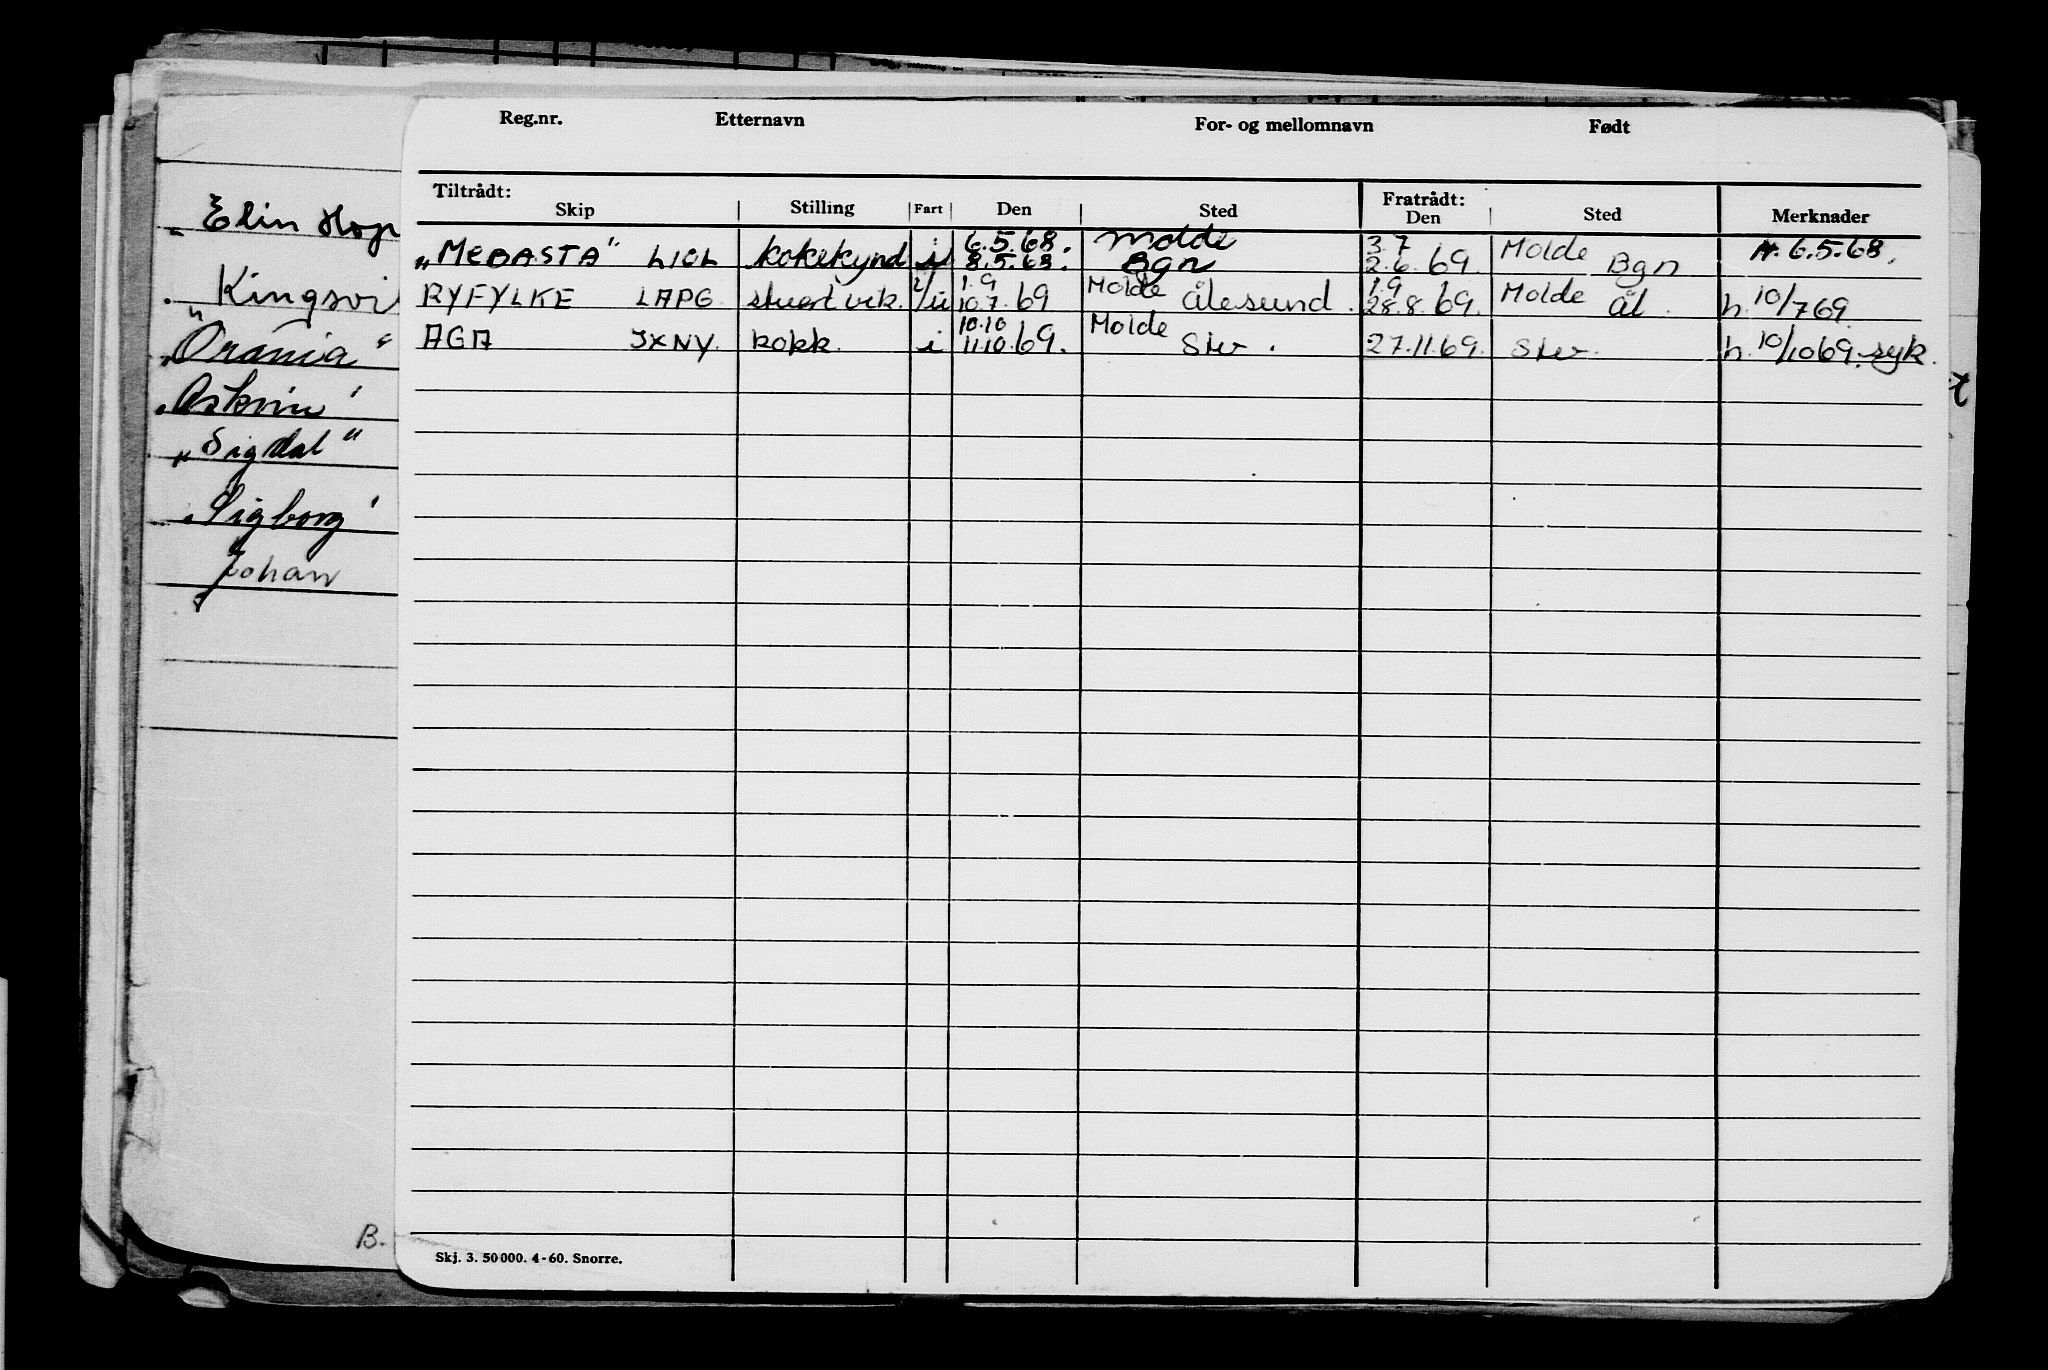 Reg.nr. Etternavn For- og mellomnavn Født
Tiltrådt: Fratrådt:
Skip Stilling Fart Den Sted Den Sted Merknader
6.5.68. Molde 3.7 Molde
„MEDASTA" LICL kokekynd i 8.5.68. Bgn 2.6.69. Bgn 6.5.68.
2/ 1.9 Molde 1.9 Molde
RYFYLKE LAPG stuert vik. u 10.7.69 Ålesund. 28.8.69. Ål. h. 10/7 69.
10.10 Molde
AGA JXNY. kokk. i 11.10.69. Stv. 27.11.69. Stv. h. 10/10 69. syk.
Skj. 3. 50 000. 4-60. Snorre.
Elin
Kingsvi
„Orania"
„Sigdal"
Sigborg
Johan
B.
t